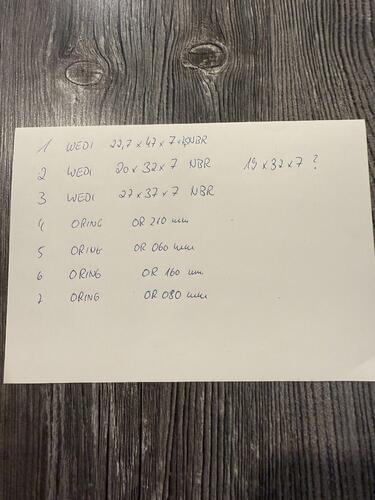 1 WEDI 22,7 x 47 x 7 NBR
2 WEDI 20 x 32 x 7 NBR 19 x 32 x 7 ?
3 WEDI 27 x 37 x 7 NBR
4 ORING OR 210 mm
5 ORING OR 060 mm
6 ORING OR 160 mm
7 ORING OR 080 mm